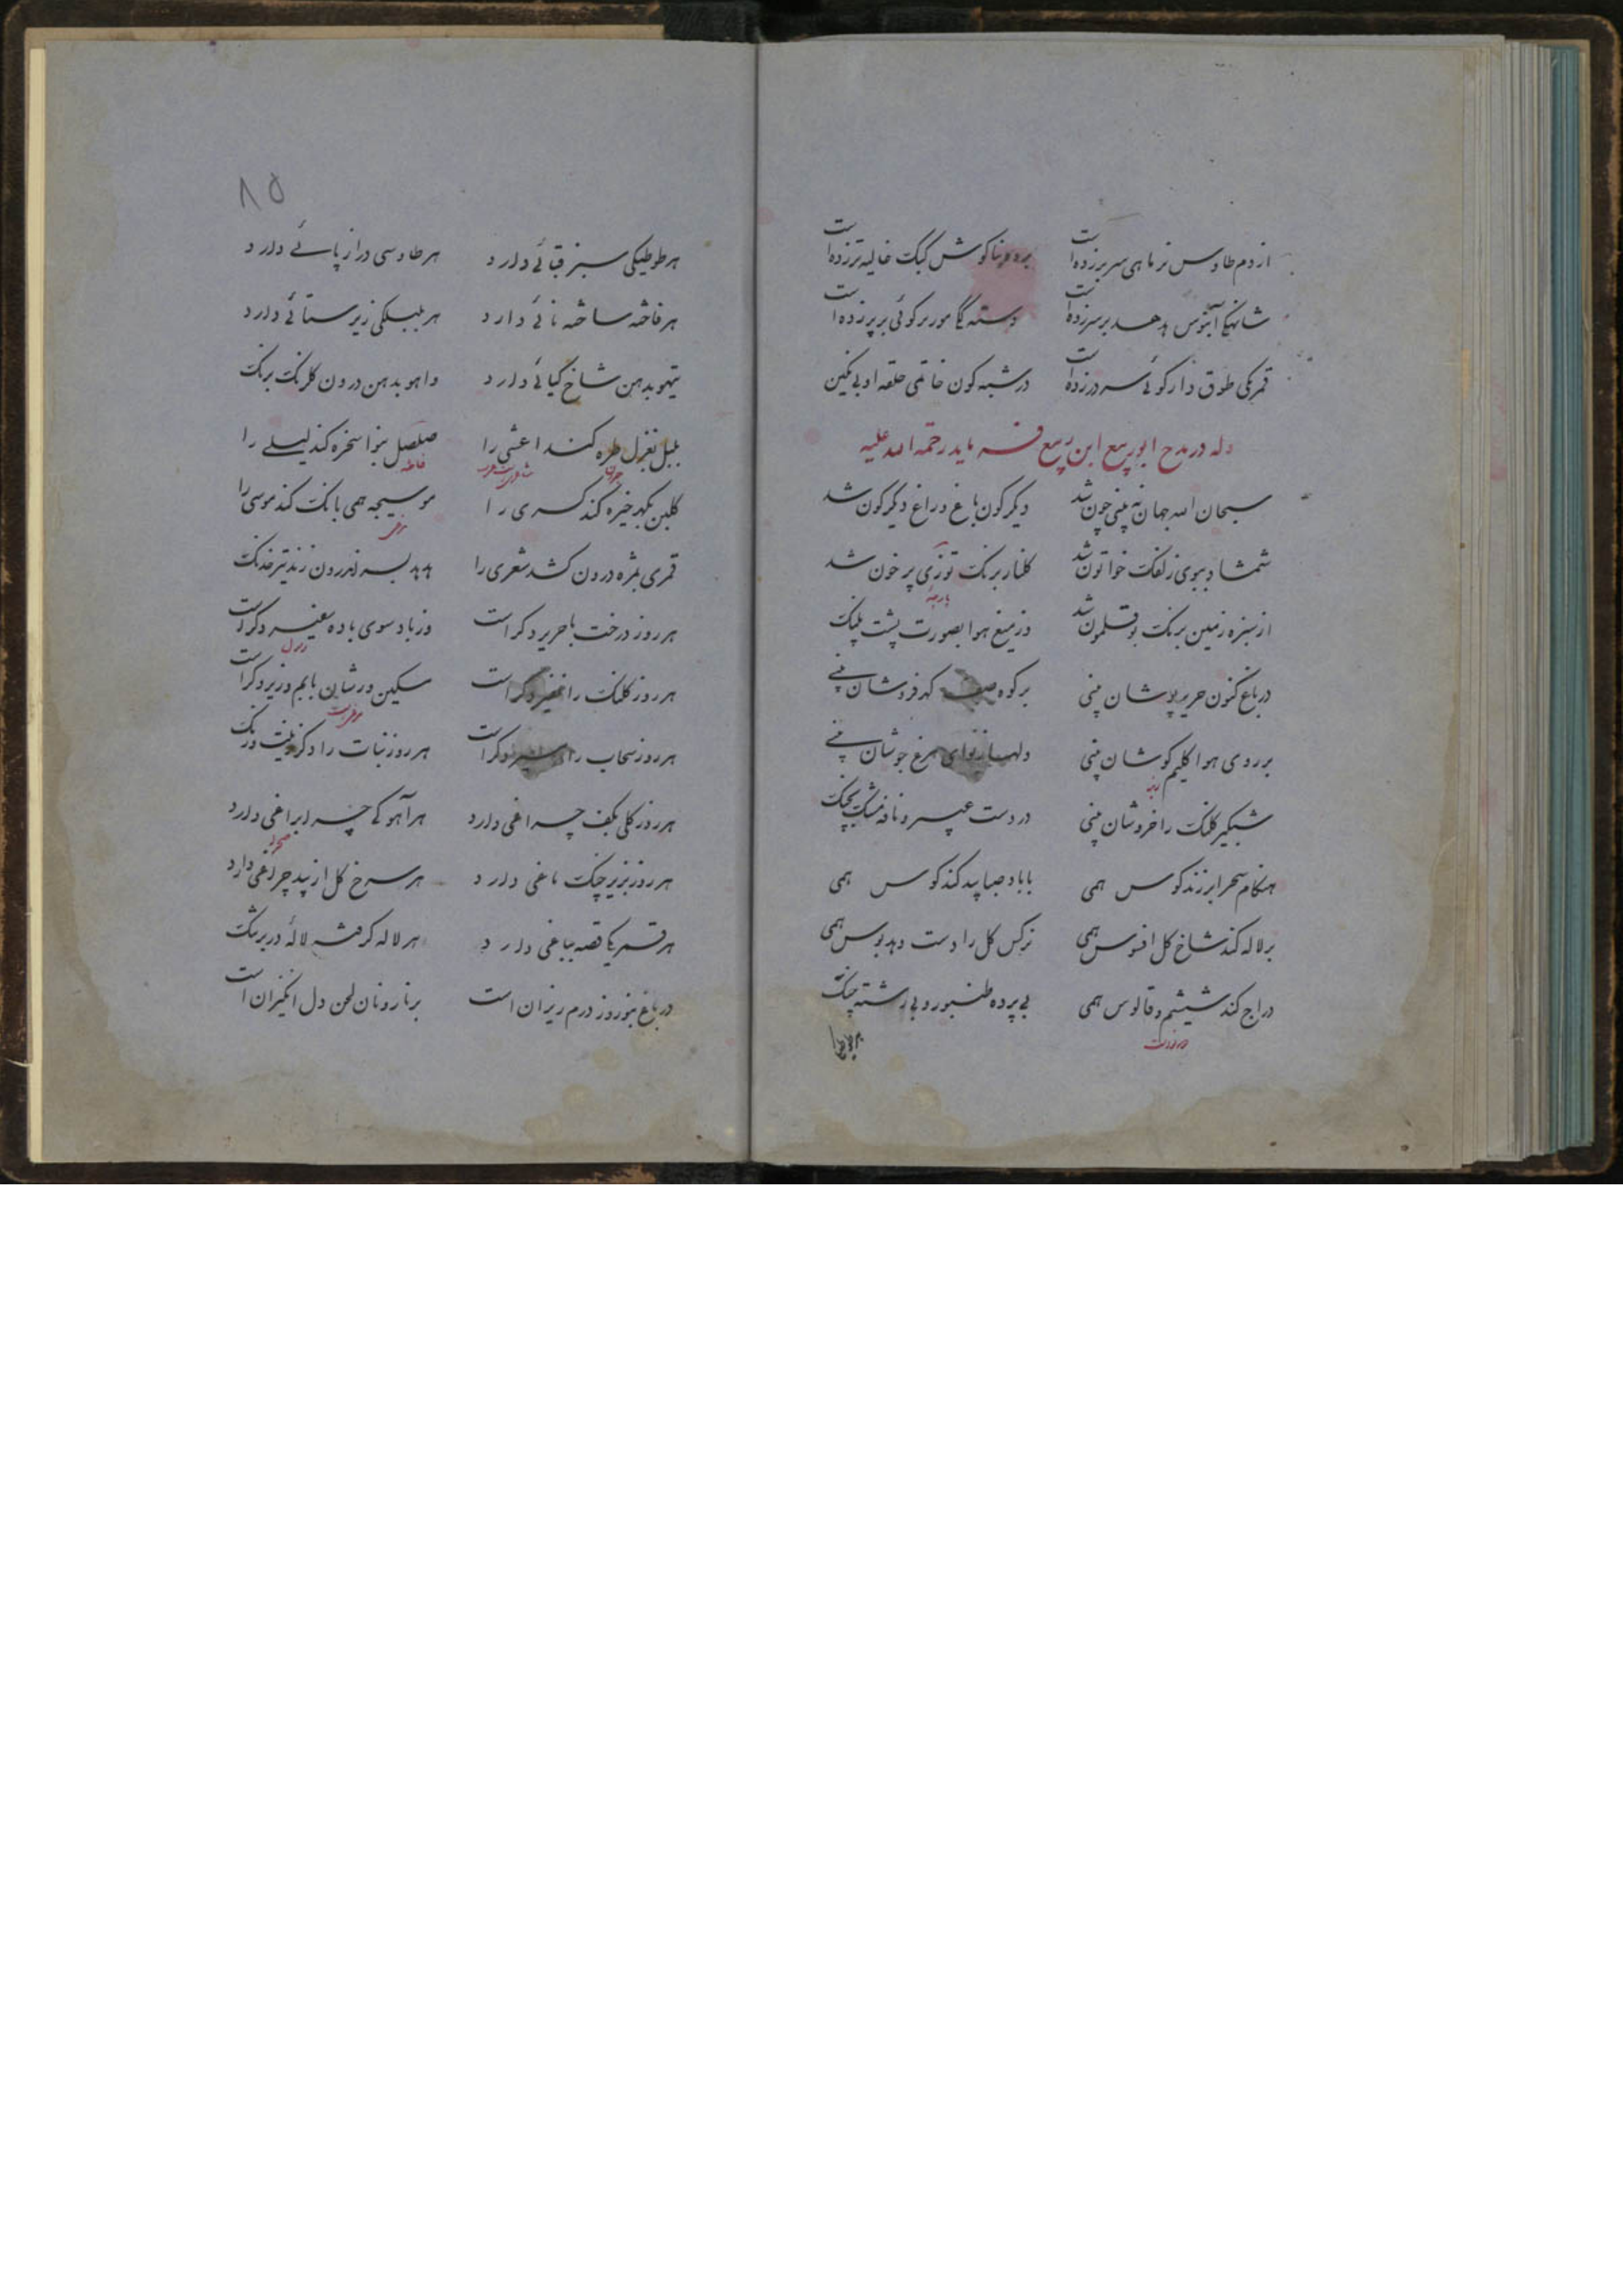 از دم طاوس نر ماهی سر بر زده است بر دو بناکوش کبک غالیه تر زده است
شانهکی آبنوس هدهد بر سر زده است دسته کیا مورد کوئی بر پر زده است
قمریکی طوق دار کوئی سر در زده است در شبه کون خاتمی حلقه او بی نکین
وله در مدح ابو ربیع ابن ربیع فرماید رحمة الله علیه
سبحان الله جهان نه بینی چون شد دیکر کون باغ و راغ دیکر کون شد
شمشاد ببوی زلفک خواتون شد کلنار برنک توزی پر خون شد
پارچهٔ
از سبزه زمین برنک بوقلمون شد وز میغ هوا بصورت پشت پلنک
در باغ کنون حریر پوشان بینی بر کوه صف کهر فروشان بینی
بر روی هوا کلیم کوشان بینی دلها ز نوای مرغ جوشان بینی
شبکیر کلنک را خروشان بینی در دست عبیر و نافه مشک بچنک
هنکام سحر ابر زند کوس همی با باد صبا بید کند کوس همی
بر لاله کند شاخ کل افسوس همی نرکس کل را دست دهد بوس همی
دراج کند شیشم و قالوس همی بی پرده طنبور و بی رشته چنک
۸۵
هر طوطیکی سبز قبائی دارد هر طاوسی دراز پائی دارد
هر فاخته ساخته نائی دارد هر بلبلکی زیر ستائی دارد
تیهو بدهن شاخ کیائی دارد واهو بدهن درون کل رنک برنک
بلبل بغزل طره کند اعشی را صلصل بنوا سخره کند لیلی را
فاخته
کلبن بکهر خیره کند کسری را موسیجه همی بانک کند موسی را
قمری بمژه درون کشد شعری را هدهد بسر اندرون زند تیر خدنک
هر روز درخت با حریر دکر است وز باد سوی باده سفیر دکر است
رسول
هر روز کلنک را نفیر دکر است مسکین ورشان با بم و زیر دکر است
هر روز سحاب را مسیر دکر است هر روز نبات را دکر زینت و رنک
هر روز کلی بکف چراغی دارد هر آهوکی چرا براغی دارد
صحرا
هر روز بزیر چنک ماغی دارد هر سرخ کل از بید چراغی دارد
هر قمریکا قصه بباغی دارد هر لاله کرفته لالهٔ در بر تنک
در باغ بنوروز درم ریزان است بر نارونان لحن دل انکیزان است